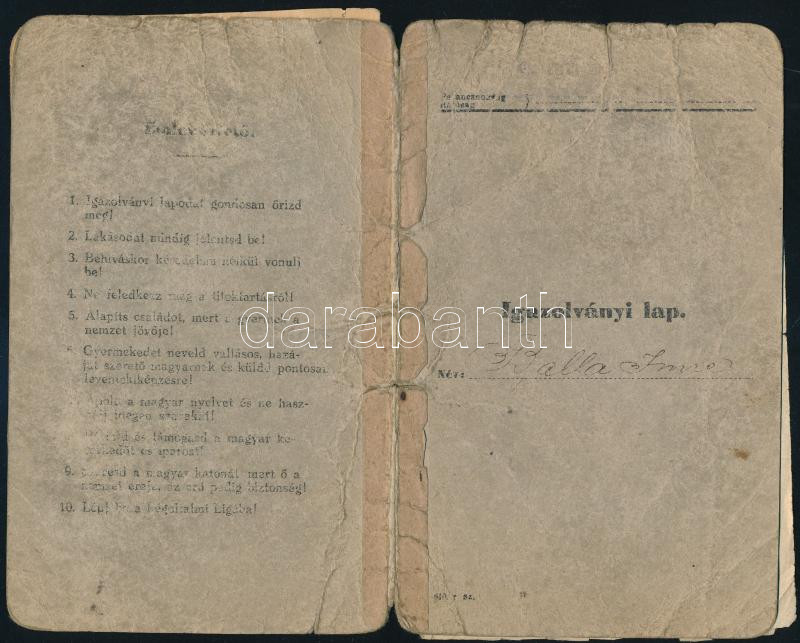 1. Igazolványi lapodat gondosan őrizd
meg!
2. Lakásodat mindig jelentsd be!
3. Behíváskor késedelem nélkül vonulj
be!
4. Ne feledkezz meg a titoktartásról!
5. Alapíts családot, mert a gyermek a
nemzet jövője!
Gyermekedet neveld vallásos, hazá-
ját szerető magyarnak és küldd pontosan
leventekiképzésre!
a magyar nyelvet és ne hasz-
idegen szavakat!
és támogasd a magyar ke-
reskedőt és iparost!
9. a magyar katonát mert ő a
nemzet ereje, az erő pedig biztonság!
10. Lépj be a Légoltalmi Ligába!
Igazolványi lap.
Név: Balla Imre
darabanth